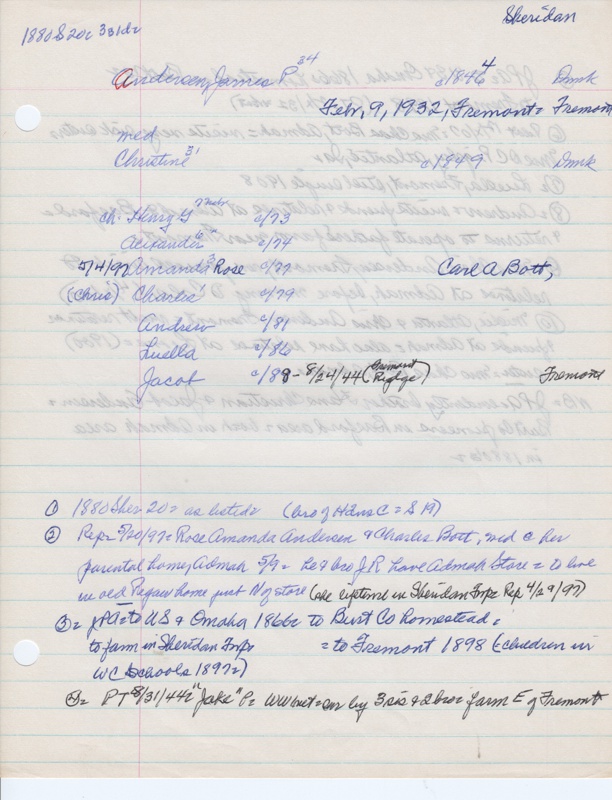 Sheridan
1880 S 20c 331dr
Andersen, James P. 34 c1846 4 Dnmk
Febr, 9, 1932, Fremont = Fremont
med
Christine 31 c1849 Dnmk
ch. Henry G Nebr c/73
Alexander 6 c/74
5/4/97 Amanda 3 Rose c/77 Carl A Bott,
(Chris) Charlie 1 c/79
Andrew c/81
Luella c/86
Jacob c/88 - 8/24/44 (Fremont Ridge) Fremont
① 1880 Sher 20 = as listed = (bro of Hans C = S 19)
② Rep = 5/20/97 = Rose Amanda Andersen & Charles Bott, med @ her
parental home, Admah 5/9 = he & bro J.R. have Admah Store = to live
in old home just N of store (Sheridan Twp = Rep 4/29/97)
3 = JPA = to US & Omaha 1866 = to Burt Co homestead =
to farm in Sheridan Twp = to Fremont 1898 (= children in
WC Schools 1897 =)
4 = PT 8/31/44 = "Jake" P = WW by 3 sis & 2 bro = farm E of Fremont